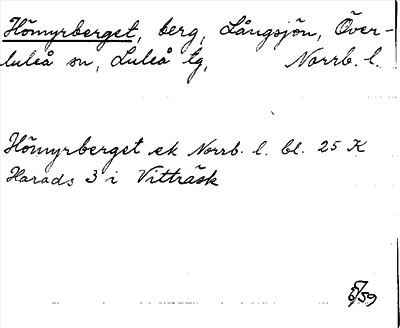 Hömyrberget, berg, Långsjön, Över-
luleå sn, Luleå tg, Norrb. l.
Hömyrberget ek Norrb. l. bl. 25 K
Harads 3 i Vitträsk